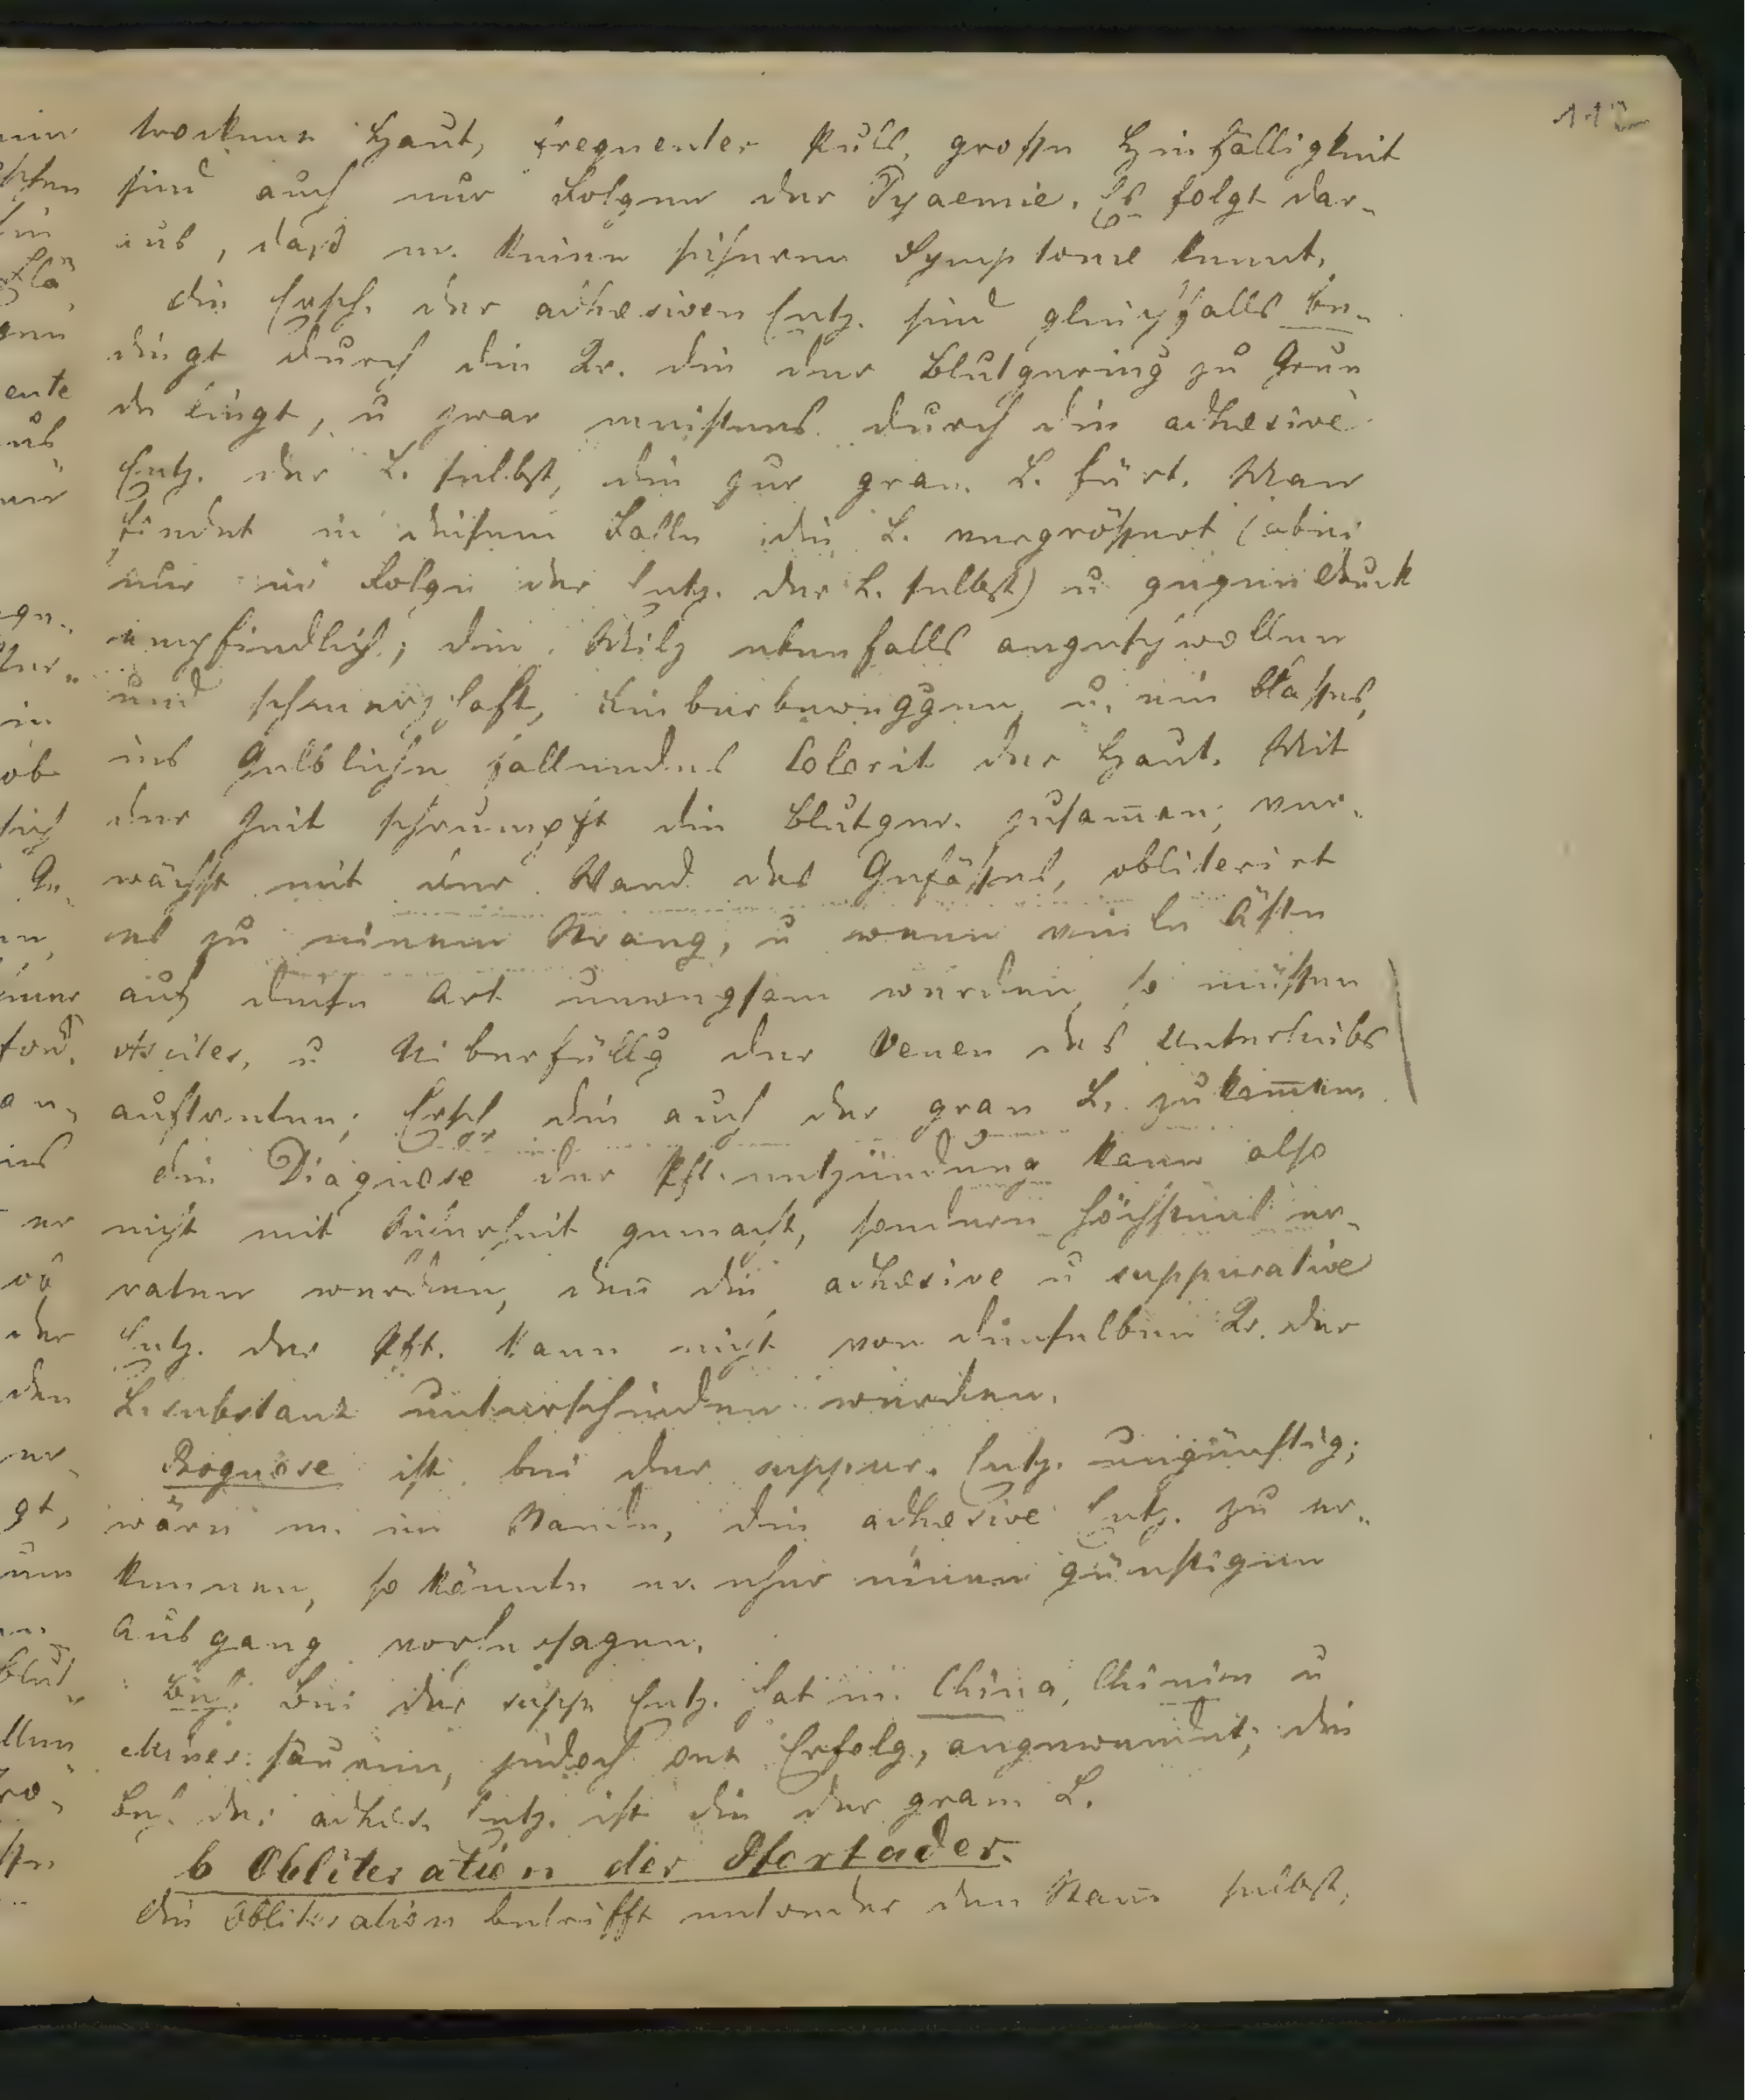 112
trockener Haut, frequenter Puls, grosse Hinfälligkeit
sind auch nur Folgen der Pyaemie. Es folgt dar-
aus, dass m. keine sicheren Symptome kennt.
Die Ersch. der adhesiven Entz. sind gleichfalls be-
dingt durch die Kr. die der Blutgering zu Grun
de liegt, u zwar meistens durch die adhesive
Entz. der L. selbst, die zur gran. L. fürt. Man
findet in diesem Falle die L. vergrössert (aber
nur in Folge der Entz. der L. selbst) u gegen Druck
empfindlich; die Milz ebenfalls angeschwollen
und schmerzhaft, Fieberbeweggen u. ein blasses,
ins Gelbliche fallendes Colorit der Haut. Mit
der Zeit schrumpft die Blutger. zusam̄en, ver-
wächst mit der Wand des Gefässes, obliterirt
es zu einem Strang, u wenn viele Äste
auf diese Art unwegsam werden, so müssen
Ascites, u Uiberfüllg der Venen des Unterleibs
auftreten; Ersch die auch der gran L. zukom̄en.
Die Diagnose der Pft.entzündung kann also
nicht mit Sicherheit gemacht, sondern höchstens er-
raten werden, den̄ die adhesive u suppurative
Entz. der Pft. kann nicht von dieselben Kr. der
L.substanz unterschieden werden.
Prognose ist bei der suppur. Entz. ungünstig;
wäre m. im Stande, die adhesive Entz. zu er-
kennen, so könnte m. eher einen günstigen
Ausgang vorhersagen.
Beh. Bei der supp Entz. hat m. China, Chinin u
Mineralsäuren, jedoch one Erfolg, angewendet; die
Beh. der adhes. Entz. ist die der gran L.
b Obliteration der Pfortader.
Die Obliteration betrifft entweder den Stam̄ selbst,